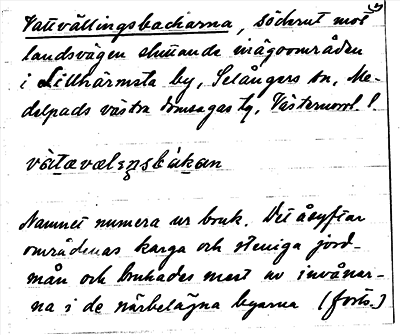 Vattvällingsbackarna, söderut mot
landsvägen sluttande inägoområden
i Lillhärmsta by, Selångers sn, Me-
delpads västra domsagas tg, Västernorrl. l.
Namnet numera ur bruk. Det åsyftar
områdenas karga och steniga jord-
mån och brukades mest av invånar-
na i de närbelägna byarna (forts.)